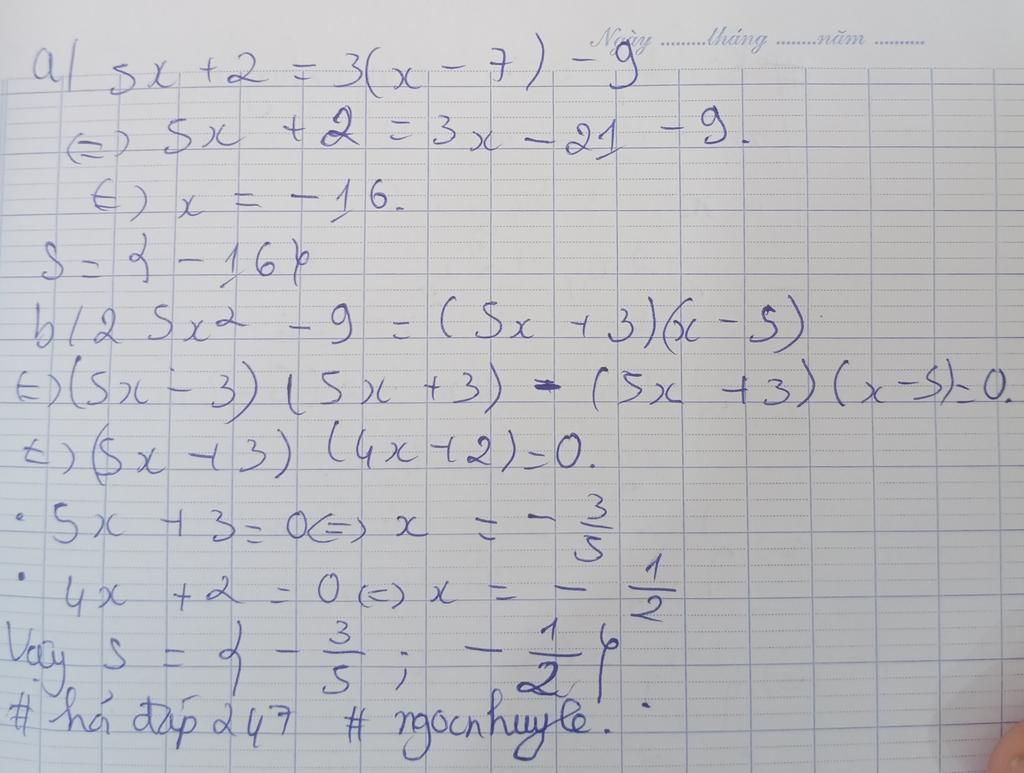 Ngày ......... tháng ........ năm ..........
a/ 5x + 2 = 3(x - 7) - 9
<=> 5x + 2 = 3x - 21 - 9.
<=> x = -16.
S = {-16}
b/ 25x² - 9 = (5x + 3)(x - 5)
<=> (5x - 3)(5x + 3) - (5x + 3)(x - 5) = 0.
<=> (5x + 3)(4x + 2) = 0.
• 5x + 3 = 0 <=> x = -3/5
• 4x + 2 = 0 <=> x = -1/2
Vậy S = {-3/5; -1/2}
# hỏi đáp 247 # ngocnhuyle.